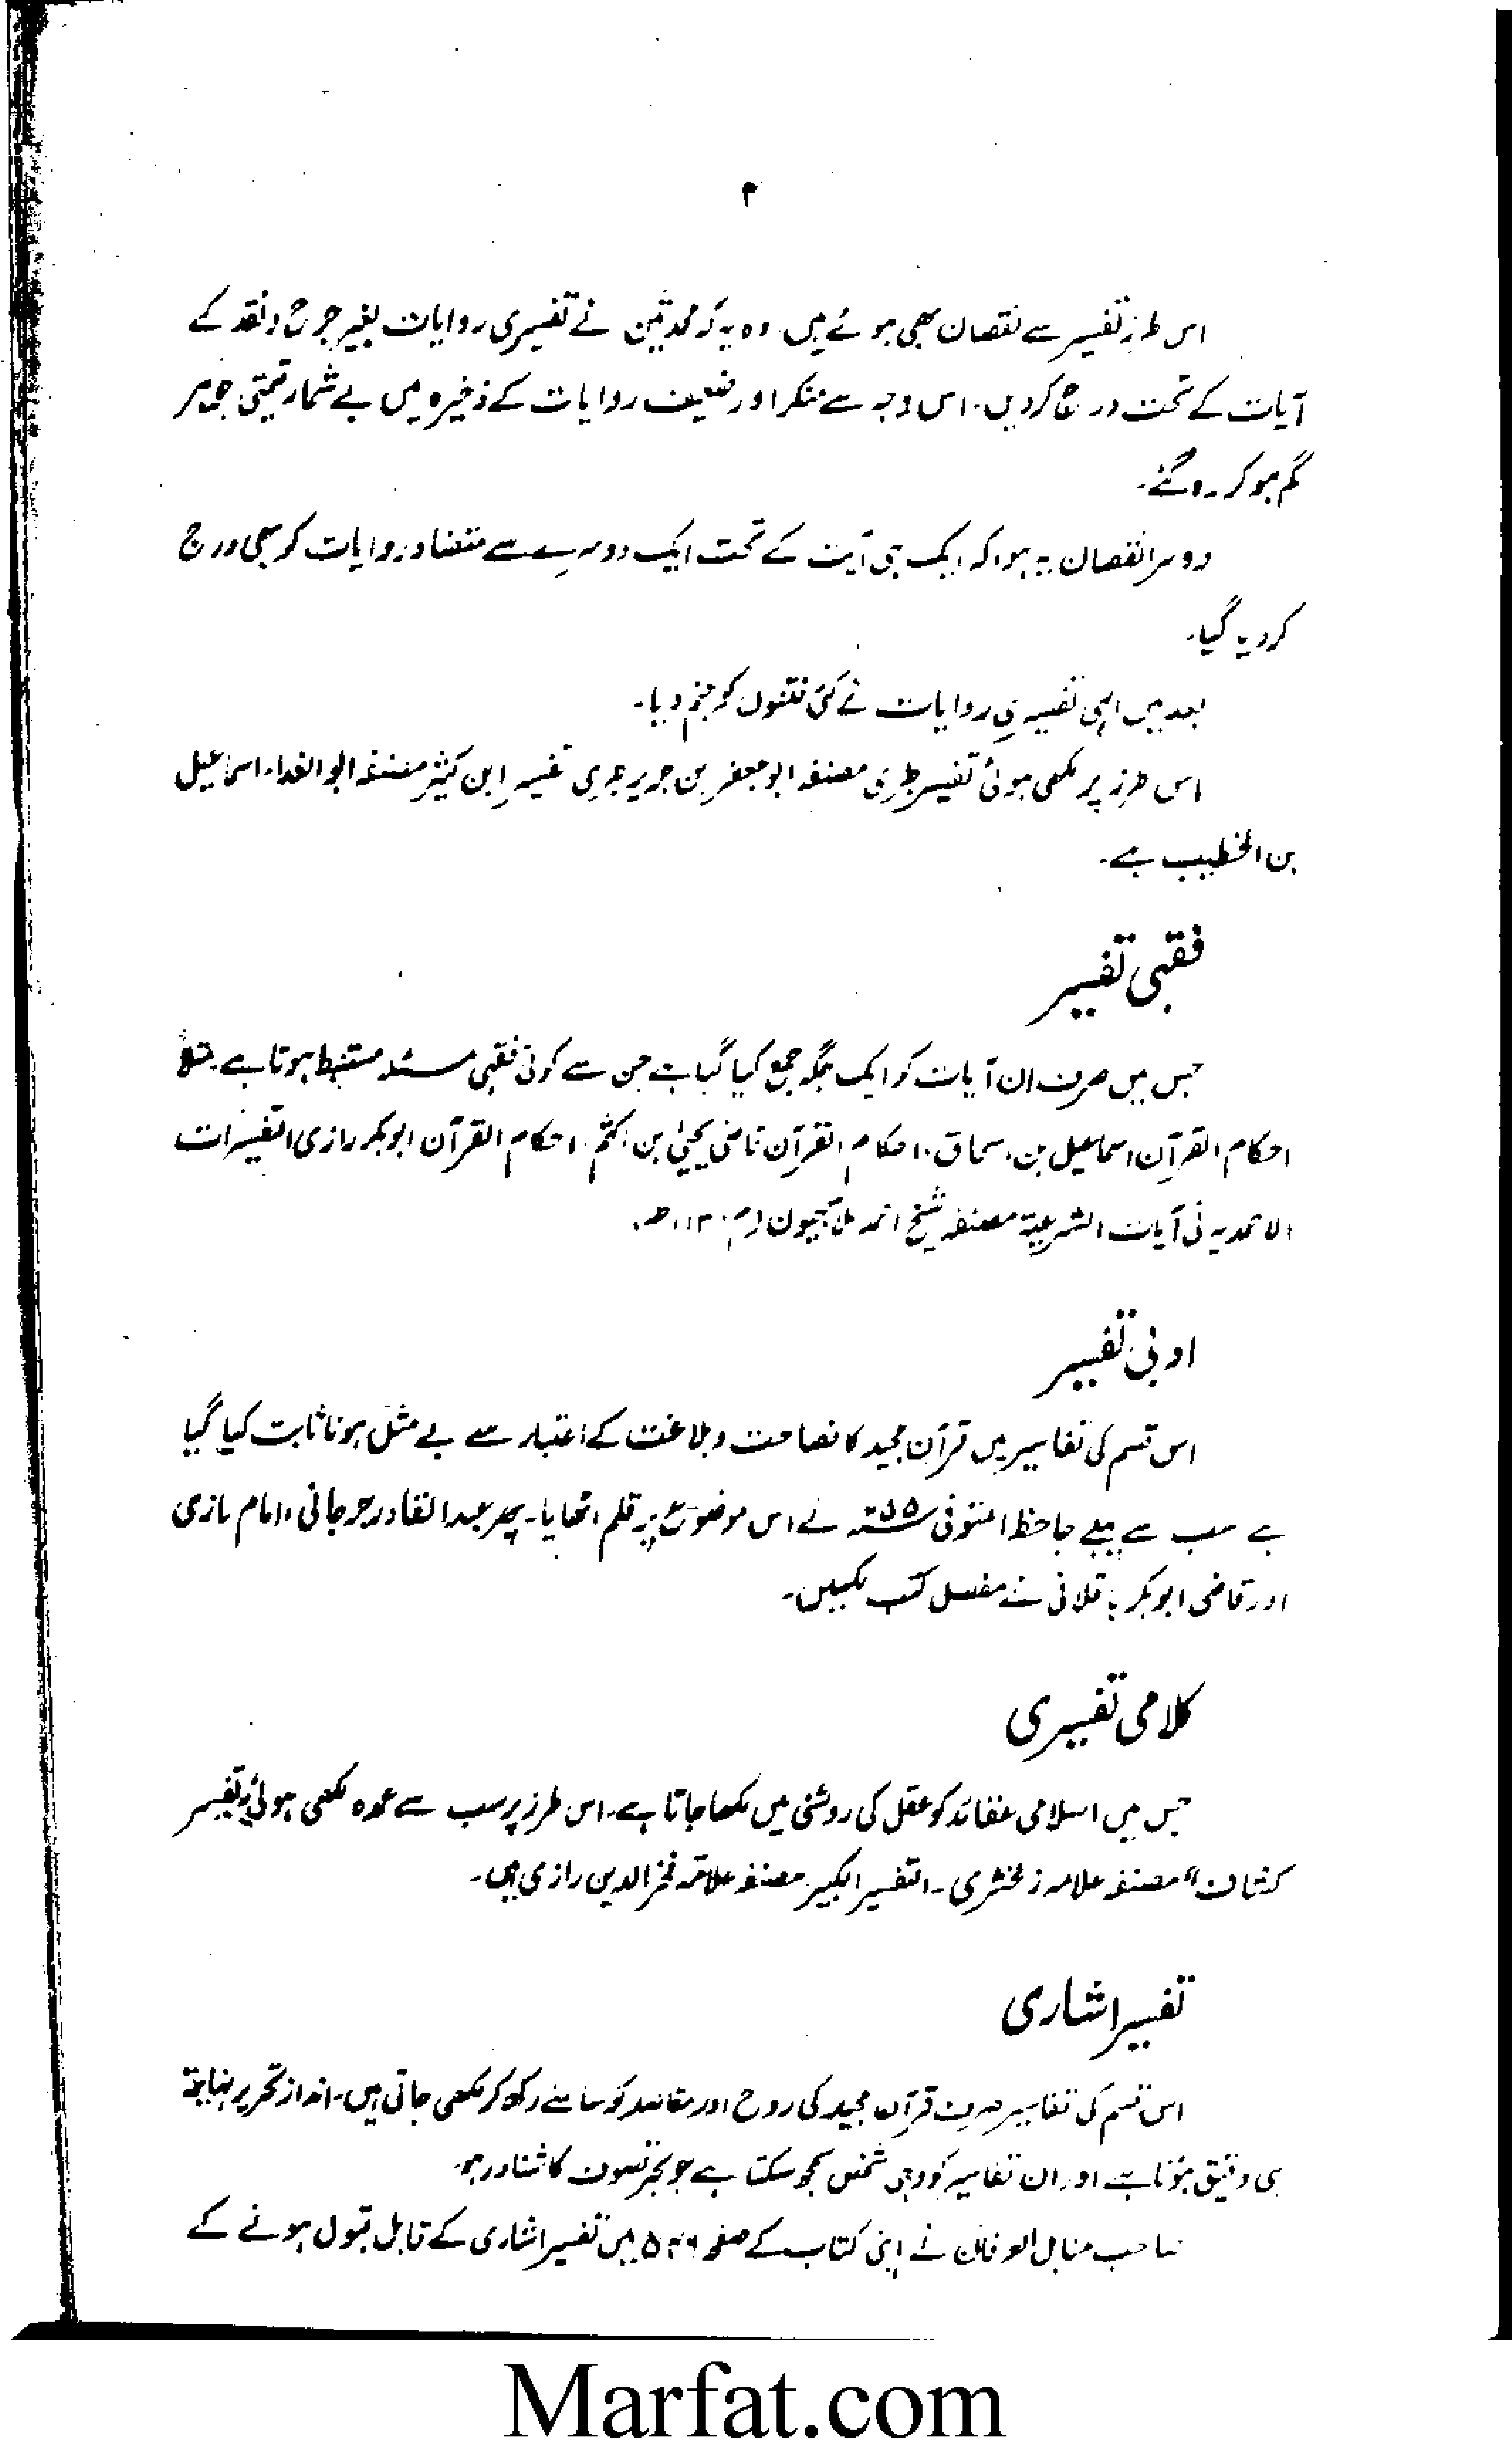 ۴
اس طرزِ تفسیر سے نقصان بھی ہوئے ہیں وہ یہ کہ محدثین نے تفسیری روایات بغیر جرح و نقد کے
آیات کے تحت درج کر دیں۔ اس وجہ سے منکر اور ضعیف روایات کے ذخیرہ میں بے شمار قیمتی جوہر
گم ہو کر رہ گئے۔
دوسرا نقصان یہ ہوا کہ ایک ہی آیت کے تحت ایک دوسرے سے متضاد روایات کو بھی درج
کر دیا گیا۔
بعد میں انہی تفسیری روایات نے کئی فتنوں کو جنم دیا۔
اس طرز پر لکھی ہوئی تفسیر طبری مصنفہ ابو جعفر بن جریر طبری تفسیر ابن کثیر مصنفہ ابو الفداء اسماعیل
بن الخطیب ہے۔
فقہی تفسیر
جس میں صرف ان آیات کو ایک جگہ جمع کیا گیا ہے جن سے کوئی فقہی مسئلہ مستنبط ہوتا ہے۔ مثلاً
احکام القرآن اسماعیل بن اسحاق، احکام القرآن قاضی یحییٰ بن اکثم، احکام القرآن ابوبکر رازی التفسیرات
الاحمدیہ فی آیات الشرعیۃ مصنفہ شیخ احمد ملا جیون (م ۱۱۳۰ھ)
ادبی تفسیر
اس قسم کی تفاسیر میں قرآن مجید کا فصاحت و بلاغت کے اعتبار سے بے مثل ہونا ثابت کیا گیا
ہے سب سے پہلے جاحظ المتوفی نے اس موضوع پر قلم اٹھایا۔ پھر عبدالقادر جرجانی، امام رازی
اور قاضی ابوبکر باقلانی نے مفصل کتب لکھیں۔
کلامی تفسیری
جس میں اسلامی عقائد کو عقل کی روشنی میں لکھا جاتا ہے۔ اس طرز پر سب سے عمدہ لکھی ہوئی تفسیر
کشاف" مصنفہ علامہ زمخشری۔ التفسیر الکبیر مصنفہ علامہ فخر الدین رازی ہیں۔
تفسیر اشاری
اس قسم کی تفاسیر صرف قرآن مجید کی روح اور مقاصد کو سامنے رکھ کر لکھی جاتی ہیں۔ انداز تحریر نہایت
ہی دقیق ہوتا ہے اور ان تفاسیر کو وہی شخص سمجھ سکتا ہے جو بحر تصوف کا شناور ہو۔
صاحب مناہل العرفان نے اپنی کتاب کے صفحہ ۵۴۶ میں تفسیر اشاری کے قابل قبول ہونے کے
Marfat.com